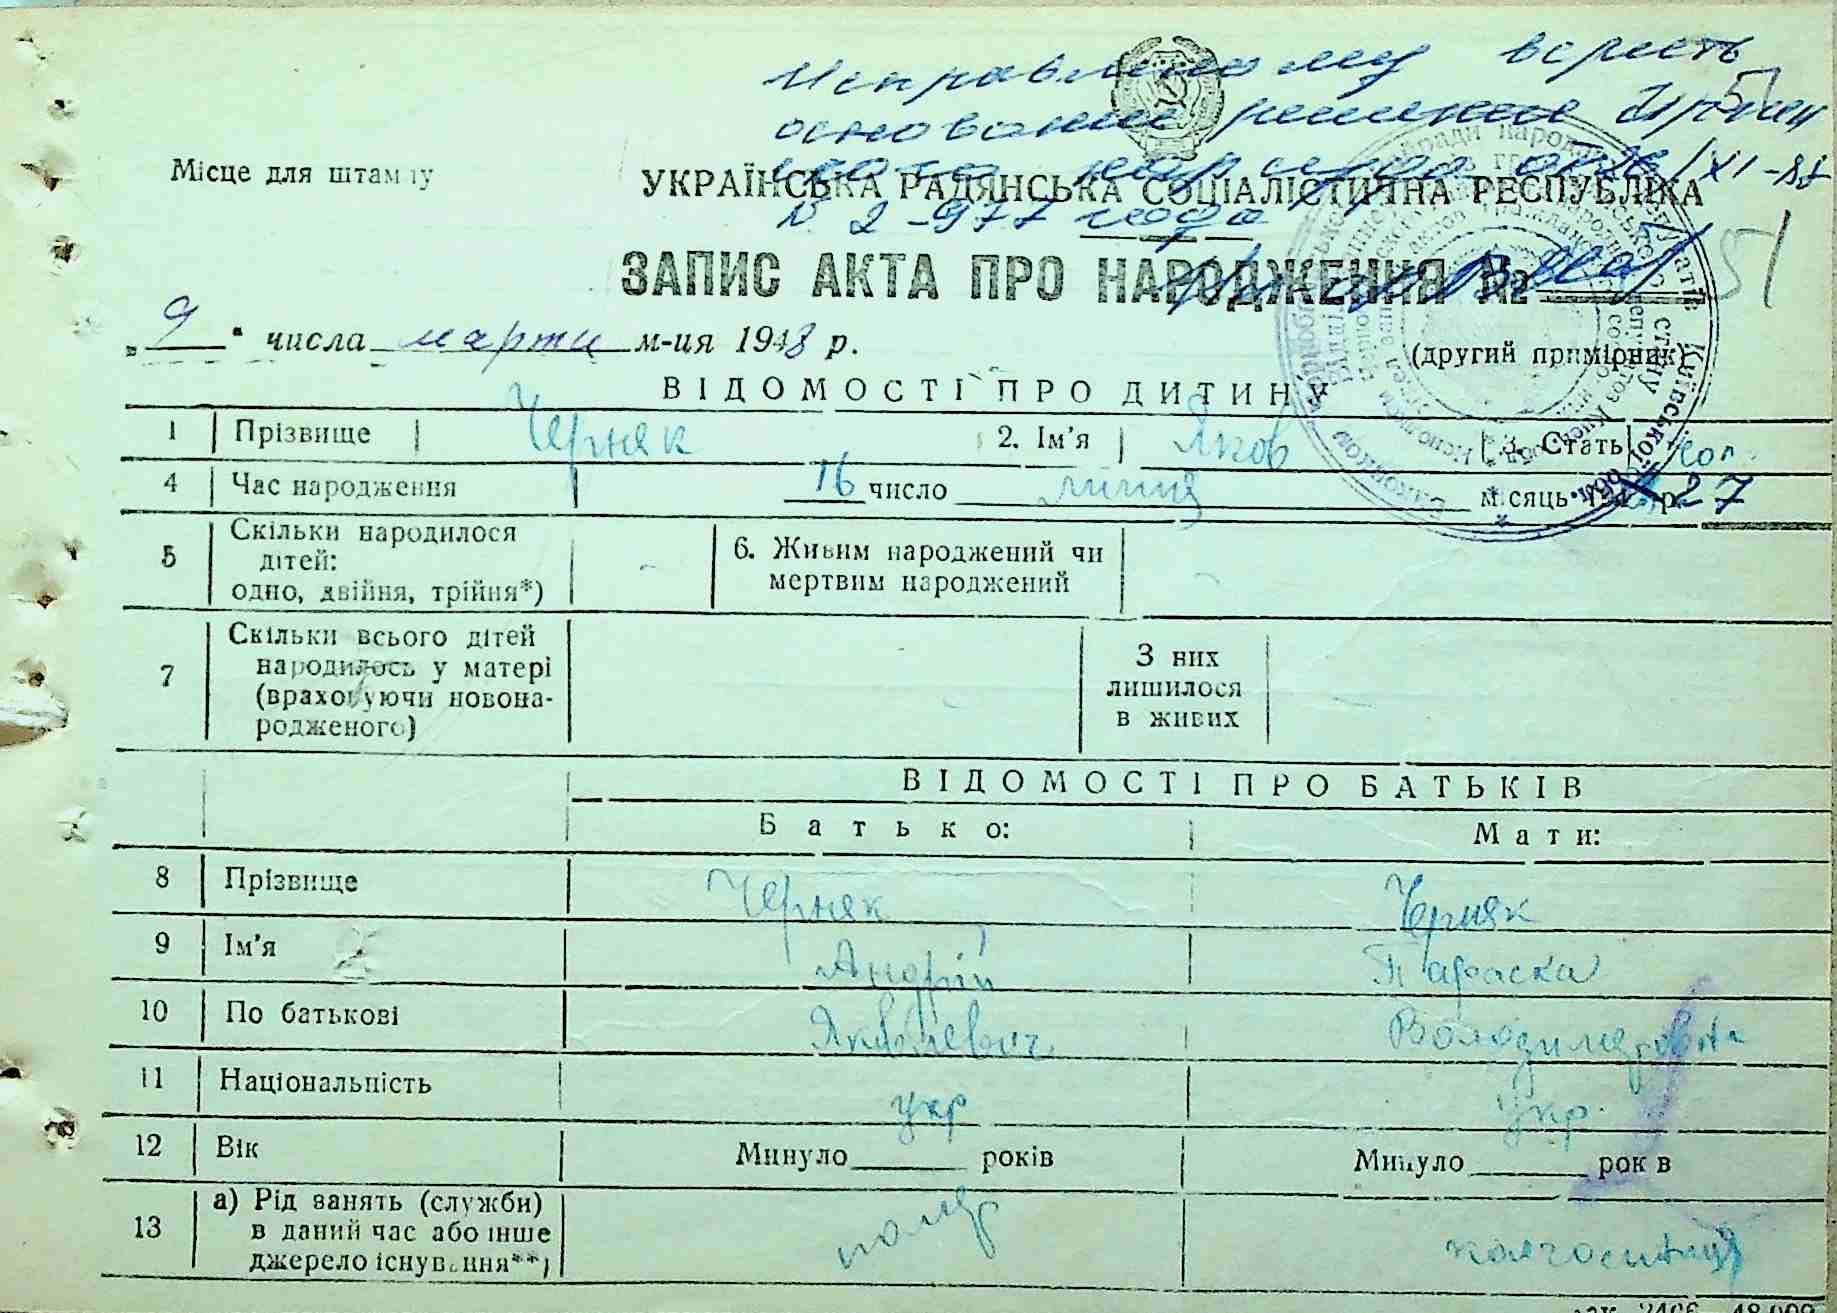 Исправленому верить
основание решение Ирпен
№ 2-977 года
51
Місце для штампу
УКРАЇНСЬКА РАДЯНСЬКА СОЦІАЛІСТИЧНА РЕСПУБЛІКА
ЗАПИС АКТА ПРО НАРОДЖЕННЯ № 51
„9" числа марта м-ця 1948 р.
(другий примірник)
ВІДОМОСТІ ПРО ДИТИНУ
1 Прізвище Черняк 2. Ім'я Яков 3. Стать чол.
4 Час народження 16 число липня місяць р. 27
5 Скільки народилося
дітей:
одно, двійня, трійня*)
6. Живим народжений чи
мертвим народжений
7 Скільки всього дітей
народилось у матері
(враховуючи новона-
родженого)
З них
лишилося
в живих
ВІДОМОСТІ ПРО БАТЬКІВ
Батько: Мати:
8 Прізвище Черняк Черняк
9 Ім'я Андрій Параска
10 По батькові Яковлевич Володимировна
11 Національність укр укр.
12 Вік Минуло ______ років Минуло ______ рок в
13 а) Рід занять (служби)
в даний час або інше
джерело існування**)
помер колгоспниця